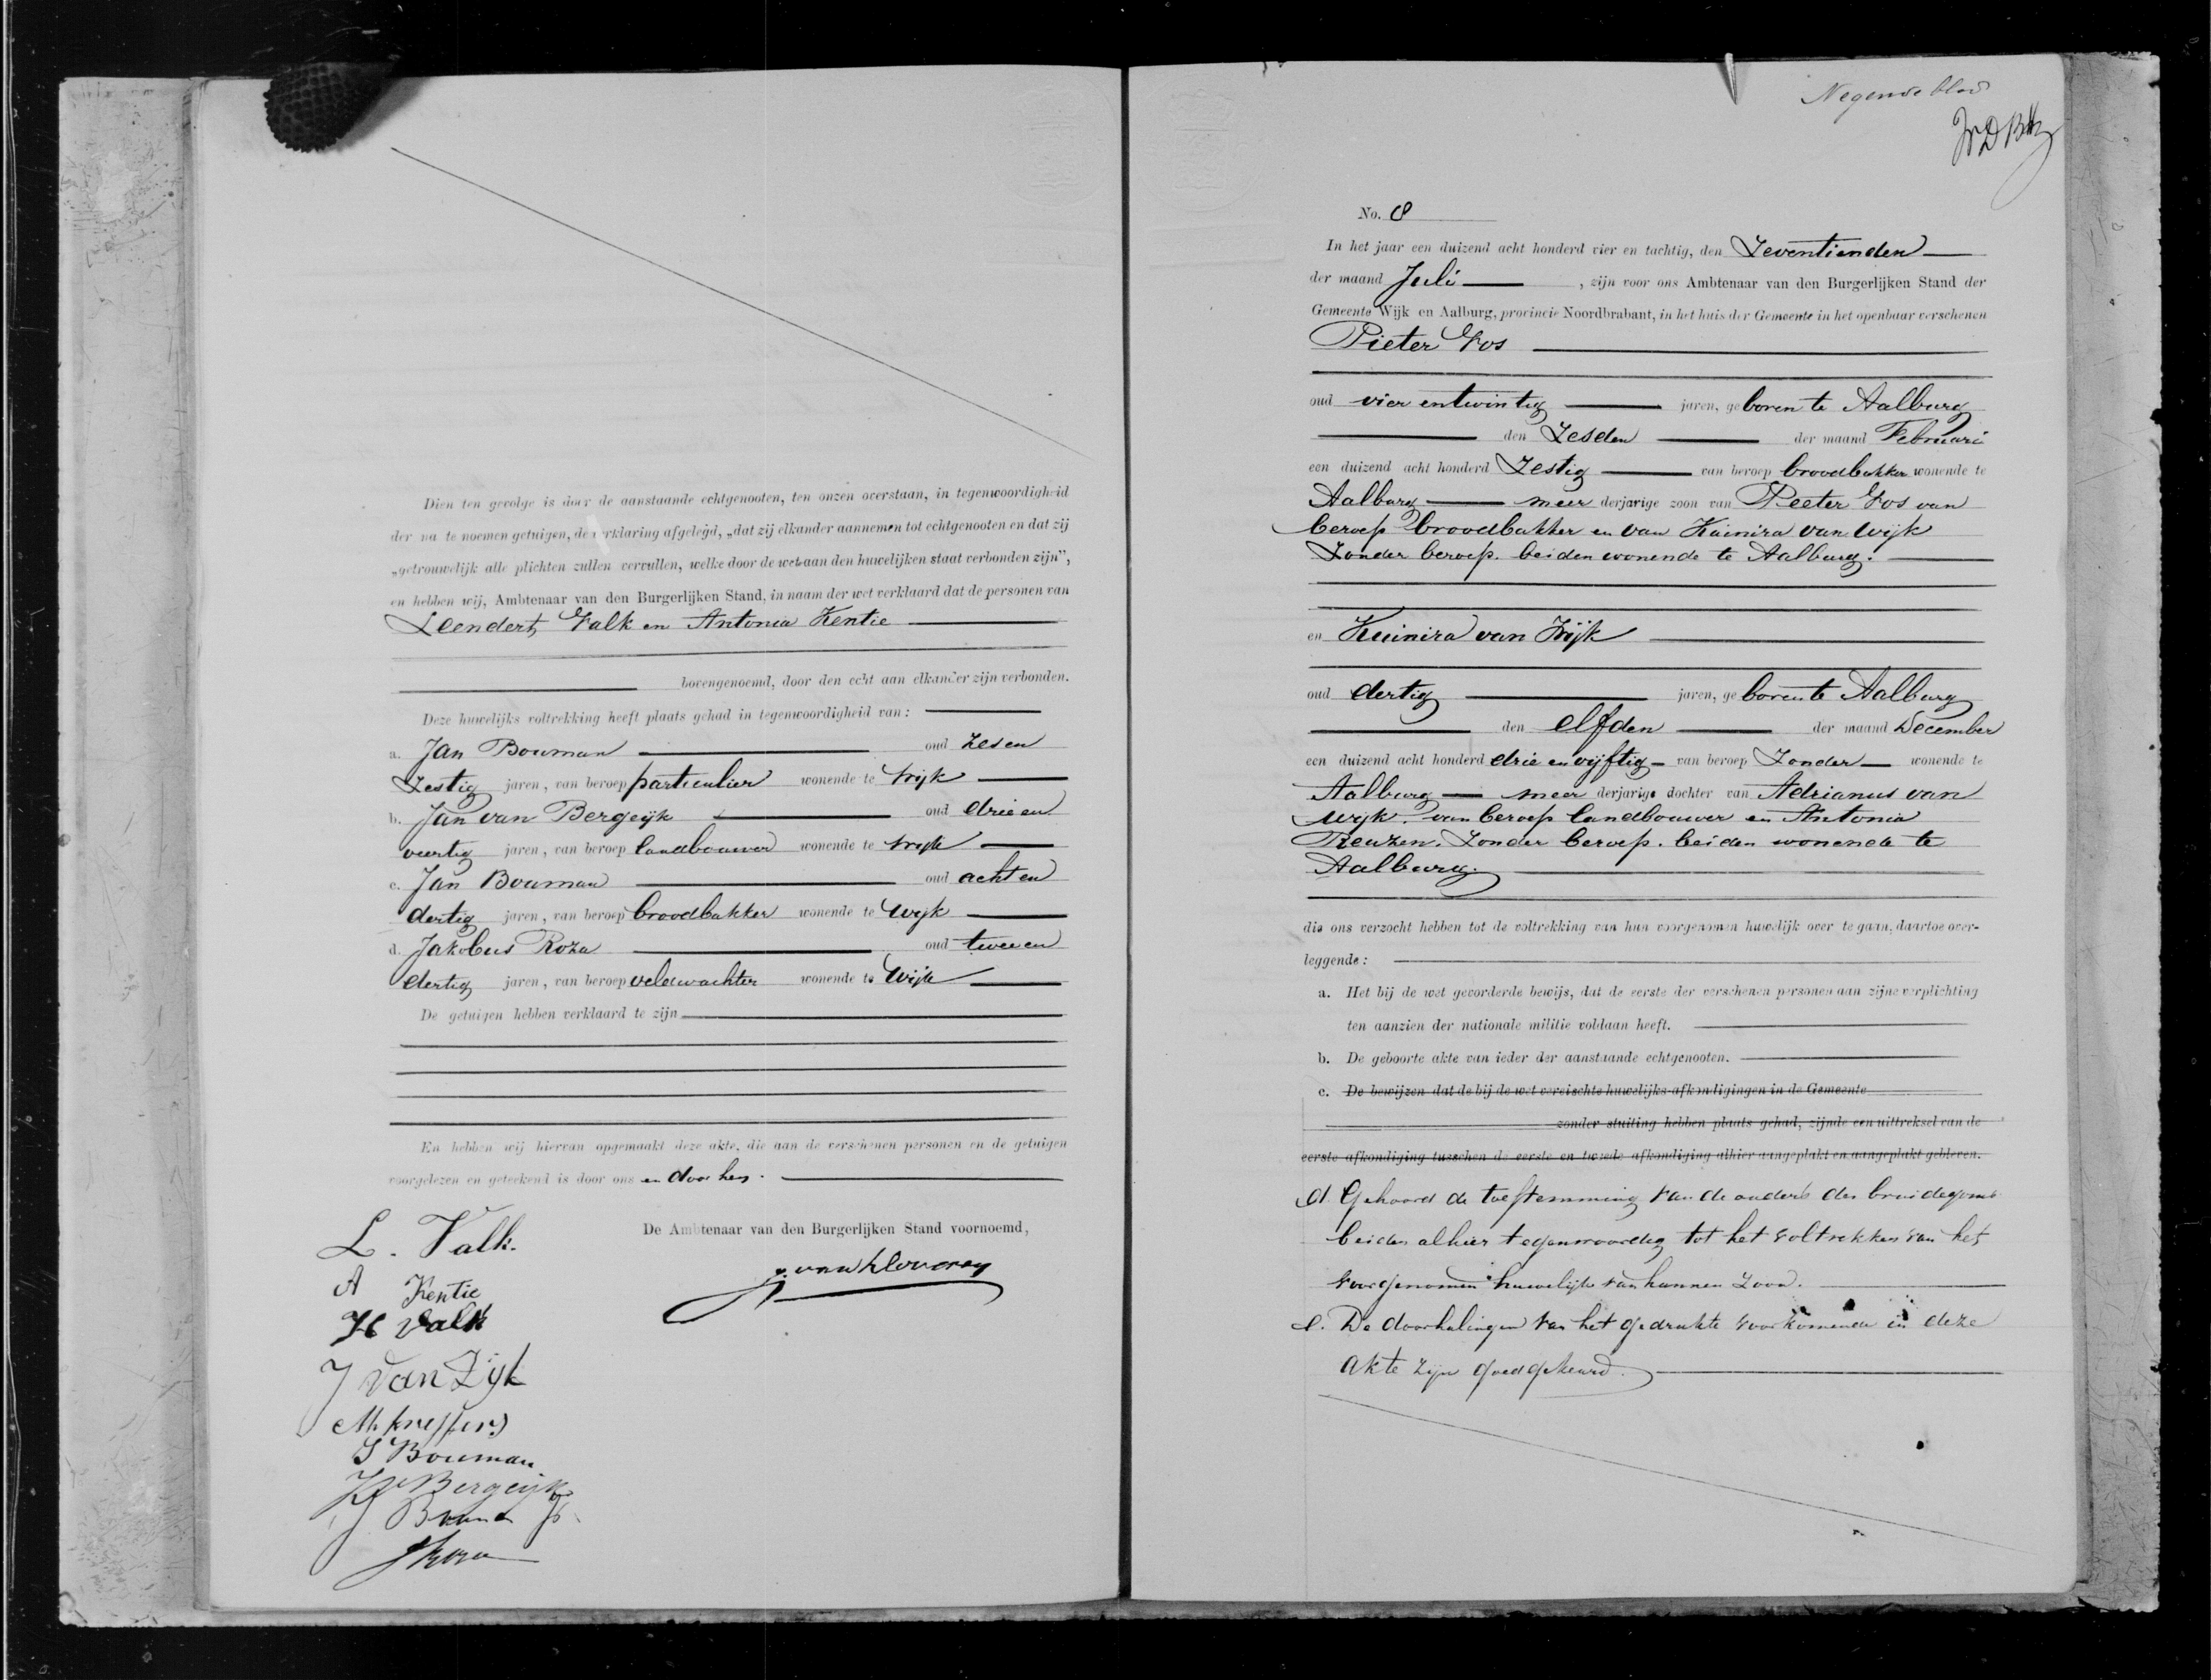 Dien ten gevolge is door de aanstaande echtgenooten, ten onzen overstaan, in tegenwoordigheid
der na te noemen getuigen, de verklaring afgelegd, „dat zij elkander aannemen tot echtgenooten en dat zij
„getrouwelijk alle plichten zullen vervullen, welke door de wet aan den huwelijken staat verbonden zijn",
en hebben wij, Ambtenaar van den Burgerlijken Stand, in naam der wet verklaard dat de personen van
Leendert Valk en Antonia Kentie
bovengenoemd, door den echt aan elkander zijn verbonden.
Deze huwelijks voltrekking heeft plaats gehad in tegenwoordigheid van:
a. Jan Bouman oud zes en
zestig jaren, van beroep particulier wonende te Wijk
b. Jan van Bergeijk oud drie en
veertig jaren, van beroep landbouwer wonende te Wijk
c. Jan Bouman oud acht en
dertig jaren, van beroep broodbakker wonende te Wijk
d. Jakobus Roza oud twee en
dertig jaren, van beroep veldwachter wonende te Wijk
De getuigen hebben verklaard te zijn
En hebben wij hiervan opgemaakt deze akte, die aan de verschenen personen en de getuigen
voorgelezen en geteekend is door ons en door hen.
De Ambtenaar van den Burgerlijken Stand voornoemd,
L. Valk.
A Kentie
H Valk
J van Zijl
J Bouman
J v Bergeijk
J Bouma
J Roza
Negende blad
No. 8
In het jaar een duizend acht honderd vier en tachtig, den Zeventienden
der maand Juli, zijn voor ons Ambtenaar van den Burgerlijken Stand der
Gemeente Wijk en Aalburg, provincie Noordbrabant, in het huis der Gemeente in het openbaar verschenen
Pieter Vos
oud vier en twintig jaren, geboren te Aalburg
den Zesden der maand Februari
een duizend acht honderd Zestig van beroep broodbakker wonende te
Aalburg meerderjarige zoon van Peeter Vos van
beroep broodbakker en van Kuinira van Wijk
Zonder beroep. beiden wonende te Aalburg.
en Kuinira van Wijk
oud dertig jaren, geboren te Aalburg
den elfden der maand December
een duizend acht honderd drie en vijftig van beroep Zonder wonende te
Aalburg meerderjarige dochter van Adrianus van
Wijk. van beroep landbouwer en Antonia
Reuzen. Zonder beroep. beiden wonende te
Aalburg.
die ons verzocht hebben tot de voltrekking van hun voorgenomen huwelijk over te gaan, daartoe over-
leggende:
a. Het bij de wet gevorderde bewijs, dat de eerste der verschenen personen aan zijne verplichting
ten aanzien der nationale militie voldaan heeft.
b. De geboorte akte van ieder der aanstaande echtgenooten.
c. De bewijzen dat de bij de wet vereischte huwelijks-afkondigingen in de Gemeente
zonder stuiting hebben plaats gehad, zijnde een uittreksel van de
eerste afkondiging tusschen de eerste en tweede afkondiging alhier aangeplakt en aangeplakt gebleven.
d. Gehoord de toestemming van de ouders des bruidegoms
beiden alhier tegenwoordig tot het voltrekken van het
voorgenomen huwelijk van hunnen zoon.
e. De doorhalingen van het gedrukte voorkomende in deze
akte zijn goedgekeurd.